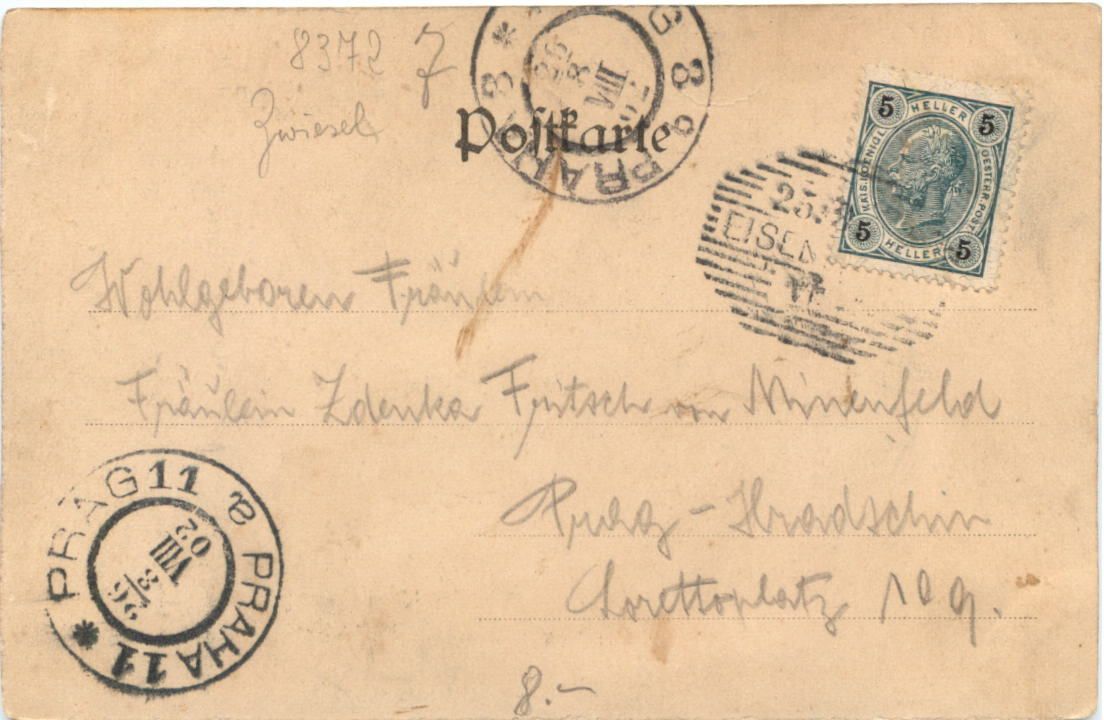 8372 Z
Zwiesel
PRAG 8 a PRAHA 8 *
26
8
VIII
02
Postkarte
5 HELLER 5
KAIS. KOENIGL. OESTERR. POST.
5 HELLER 5
25.
EISEN
Wohlgeboren Fräulein
Fräulein Zdenka Fritsch von Minenfeld
Prag - Hradschin
Lorettoplatz 109.
PRAG 11 a PRAHA 11 *
26
8
VIII
02
8.-